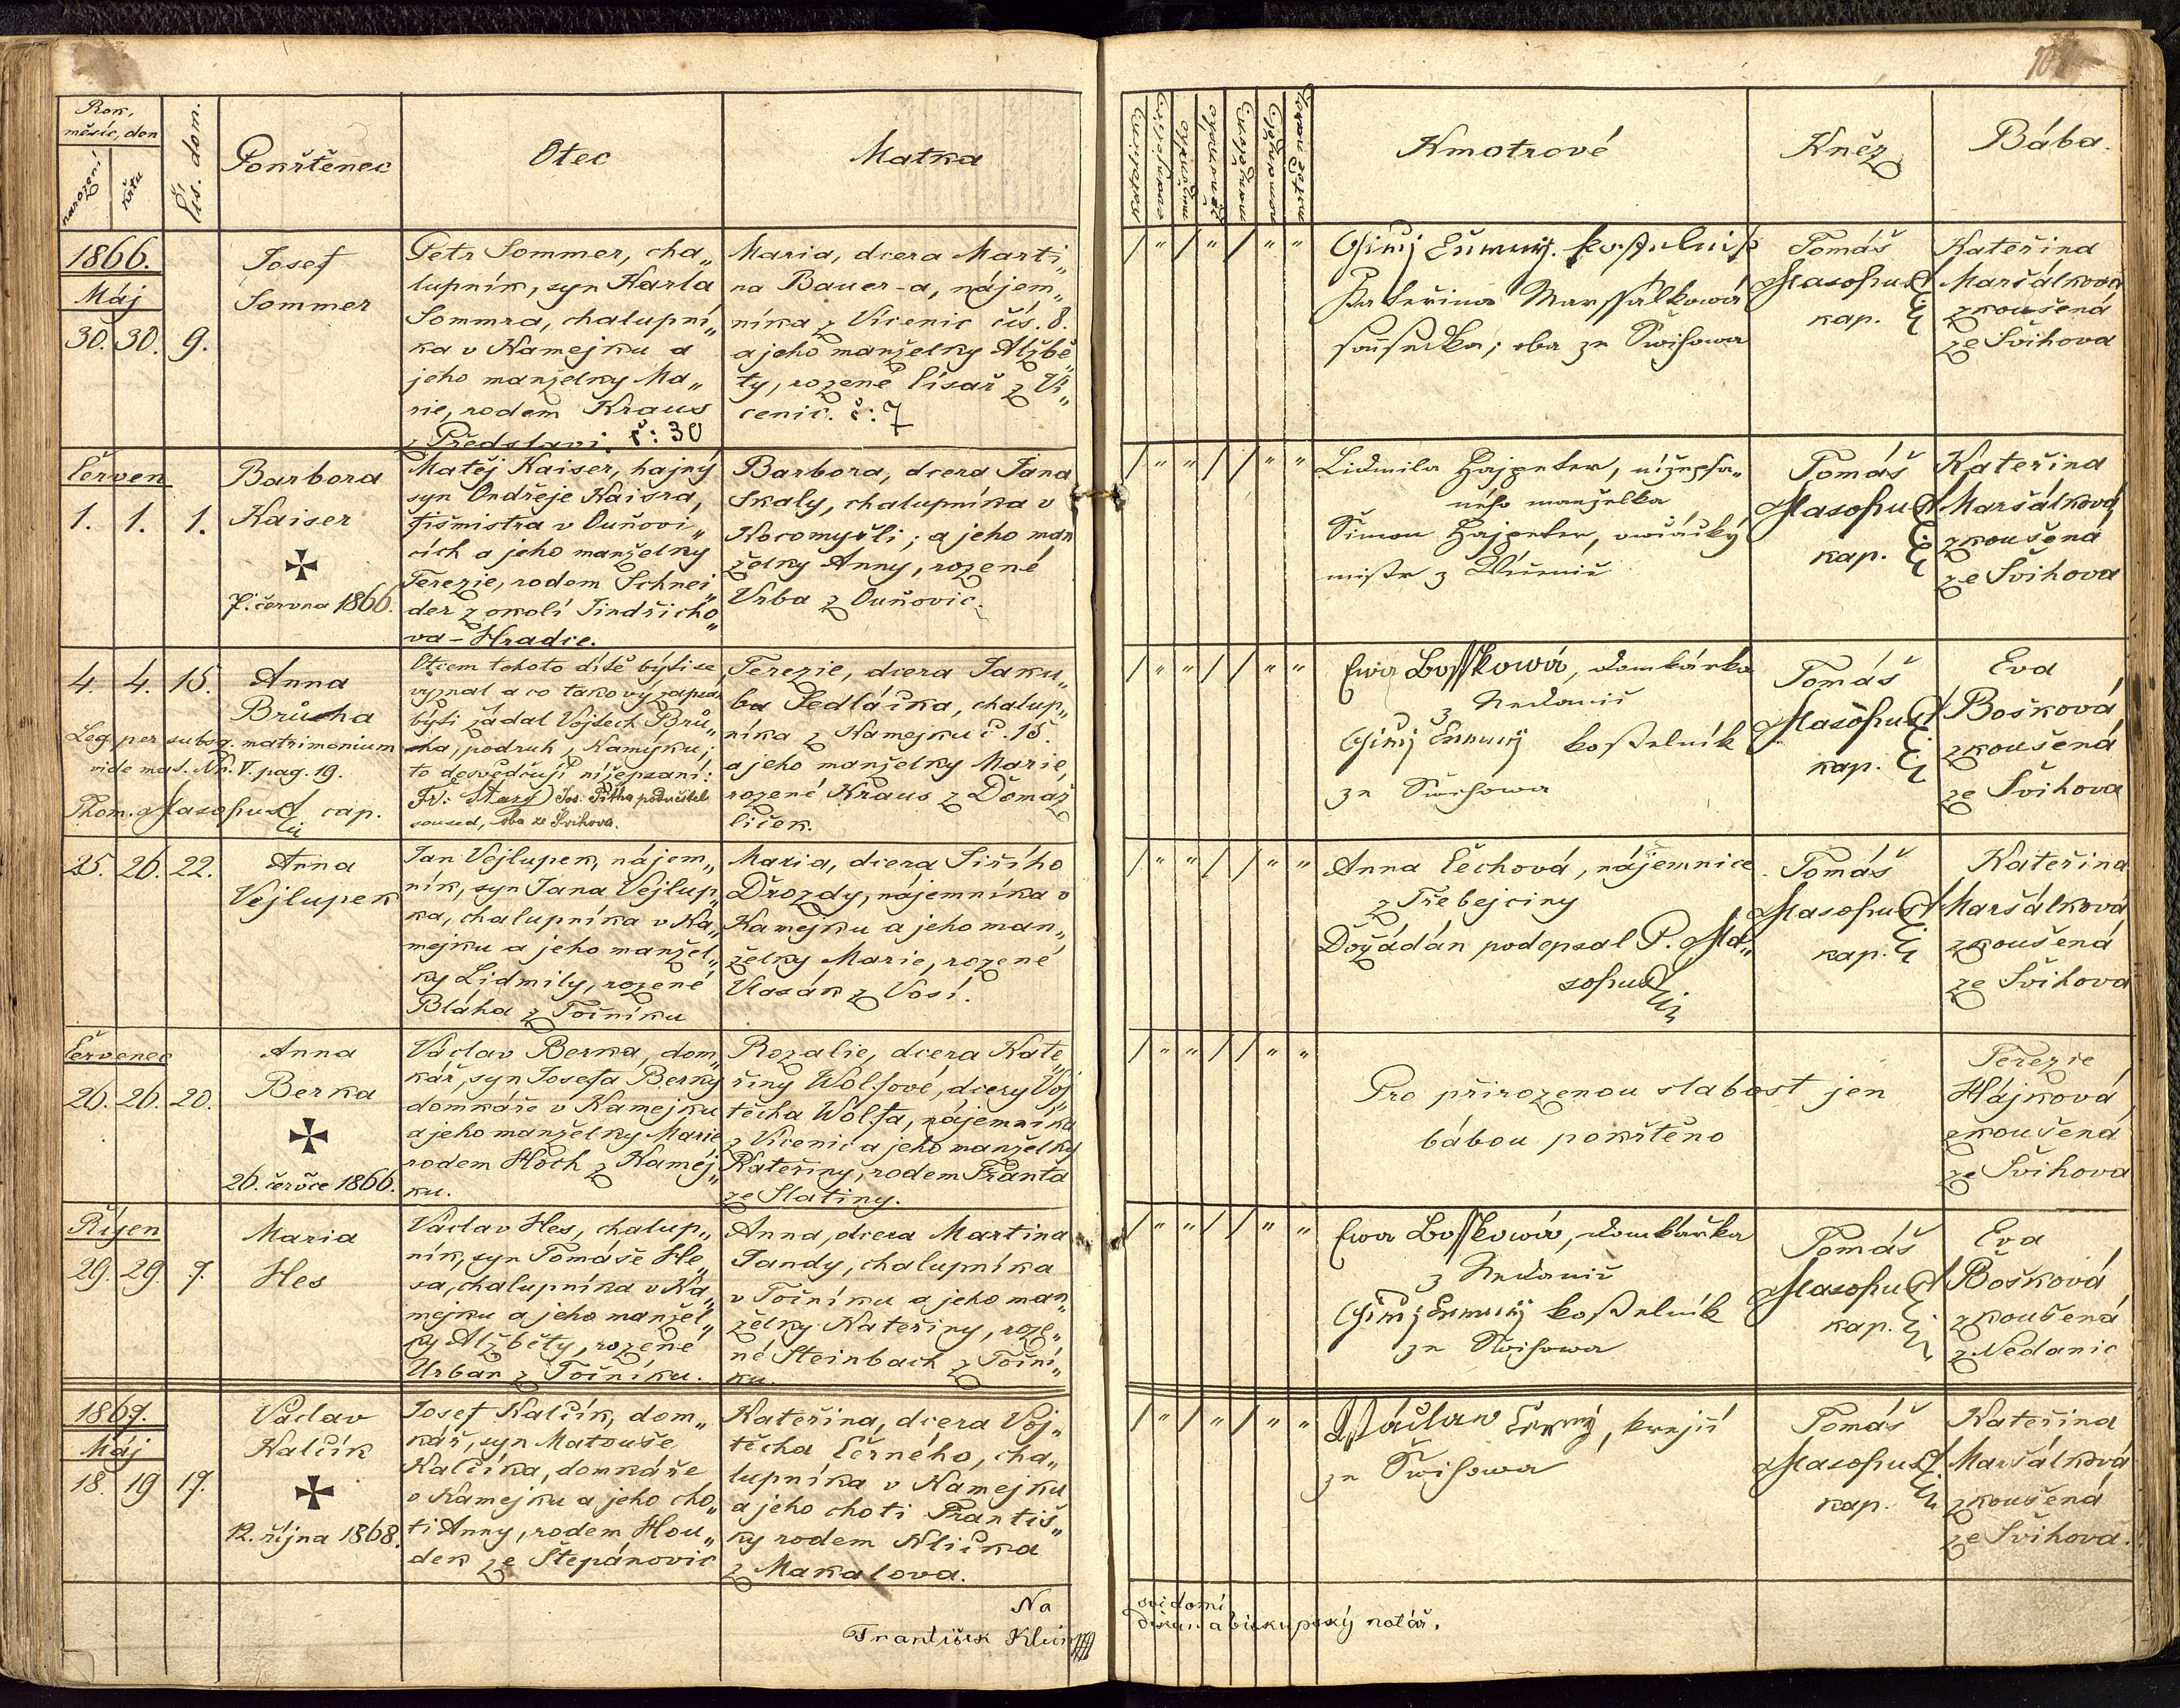 Rok,
měsíc, den
narození
křtu
Čís. dom.
Pokřtěnec
Otec
Matka
1866.
Máj
30. 30. 9.
Josef
Sommer
Petr Sommer, cha„
lupník, syn Karla
Sommra, chalupní„
ka v Kamejku a
jeho manželky Ma„
rie, rodem Kraus
z Předslavi. č: 30
Maria, dcera Marti„
na Bauer-a, nájem„
níka z Vícenic čís. 8.
a jeho manželky Alžbě„
ty, rozené Císař z Ví„
cenic. č: 7
Červen
1. 1. 1.
Barbora
Kaiser
7. června 1866.
Matěj Kaiser, hajný
syn Ondřeje Kaisra,
fišmistra v Ouňovi„
cích a jeho manželky
Terezie, rodem Schnei„
der z okolí Jindřicho„
va-Hradce.
Barbora, dcera Jana
Skaly, chalupníka v
Kocomyšli; a jeho man
želky Anny, rozené
Vrba z Ouňovic.
4. 4. 15.
Anna
Brůcha
Leg. per subsq. matrimonium
vide mat. Nr. V. pag. 19.
Thom. Masopust cap.
Otcem tohoto dítě býti se
vyznal a co takový zapsán
býti žádal Vojtěch Brů„
cha, podruh z Kamýku;
to dosvědčují nížepsaní:
Fr: Starý Jos. Pitha podučitel
soused, oba ze Švihova.
Terezie, dcera Jaku„
ba Sedláčka, chalup„
níka z Kamejku č. 15.
a jeho manželky Marie,
rozené Kraus z Domaž
liček.
25. 26. 22.
Anna
Vejlupek
Jan Vejlupek, nájem„
ník, syn Jana Vejlup„
ka, chalupníka v Ka„
mejku a jeho manžel„
ky Lidmily, rozené
Bláha z Točníku
Maria, dcera Jiřího
Drozdy, nájemníka v
Kamejku a jeho man„
želky Marie, rozené
Vlasák z Vosí.
Červenec
26. 26. 20.
Anna
Berka
26. červce 1866.
Václav Berka, dom„
kář, syn Josefa Berky
domkáře v Kamejku
a jeho manželky Marie
rodem Hoch z Kamej„
ku.
Rozalie, dcera Kate„
řiny Wolfové, dcery Voj„
těcha Wolfa, nájemníka
z Vícenic a jeho manželky
Kateřiny, rodem Franta
ze Slatiny.
Říjen
29. 29. 7.
Maria
Hes
Václav Hes, chalup„
ník, syn Tomáše He„
sa, chalupníka v Ka„
mejku a jeho manžel„
ky Alžběty, rozené
Urban z Točníku.
Anna, dcera Martina
Jandy, chalupníka
v Točníku a jeho man„
želky Kateřiny, roze„
né Steinbach z Toční„
ku.
1867.
Máj
18. 19 17.
Václav
Kalčík
12. října 1868.
Josef Kalčík, dom„
kář, syn Matouše
Kalčíka, domkáře
v Kamejku a jeho cho„
ti Anny, rodem Hou„
dek ze Štěpánovic
Kateřina, dcera Voj„
těcha Černého, cha„
lupníka v Kamejku
a jeho choti Františ„
ky rodem Klička
z Makalova.
Na
František
Kmotrové
Kněz
Bába.
Kateřina Marssálkowá
sousedka; oba ze Swihowa
Tomáš
Masopust
kap.
Kateřina
Maršálková
zkoušená
ze Švihova
Lidmila Hajpeter, nížepsa„
ného manželka
Šimon Hajpeter, owčácký
mistr z Wícenic
Tomáš
Masopust
kap.
Kateřina
Maršálková,
zkoušená
ze Švihova
Ewa Bosskowá, domkárka
z Nedanic
kostelník
ze Swihowa
Tomáš
Masopust
kap.
Eva
Bošková,
zkoušená
ze Švihova
Anna Čechová, nájemnice
z Třebejciny
Dožádán podepsal P. Ma„
sopust
Tomáš
Masopust
kap.
Kateřina
Maršálková
zkoušená
ze Švihova
Pro přirozenou slabost jen
bábou pokřtěno
Terezie
Hájková,
zkoušená
ze Švihova
Ewa Bosskowá, domkářka
z Nedanic
kostelník
ze Swihowa
Tomáš
Masopust
kap.
Eva
Bošková,
zkoušená
z Nedanic
Wáclaw Černý, krejčí
ze Swihowa
Tomáš
Masopust
kap.
Kateřina
Maršálková
zkoušená
ze Švihova.
svědomí
děkan a biskupský notář.